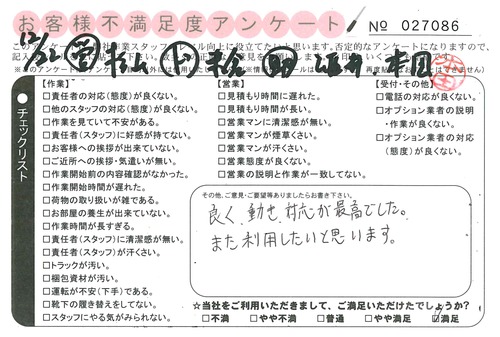 お客様不満足度アンケート
№ 027086
12/26
チェックリスト
【作業】
□責任者の対応(態度)が良くない。
□他のスタッフの対応(態度)が良くない。
□作業を見ていて不安がある。
□責任者(スタッフ)に好感が持てない。
□お客様への挨拶が出来ていない。
□ご近所への挨拶・気遣いが無い。
□作業開始前の内容確認がなかった。
□作業開始時間が遅れた。
□荷物の取り扱いが雑である。
□お部屋の養生が出来ていない。
□作業時間が長すぎる。
□責任者(スタッフ)に清潔感が無い。
□責任者(スタッフ)が汗くさい。
□トラックが汚い。
□梱包資材が汚い。
□運転が不安(下手)である。
□靴下の履き替えをしてない。
□スタッフにやる気がみられない。
【営業】
□見積もり時間に遅れた。
□見積もり時間が長い。
□営業マンに清潔感が無い。
□営業マンが煙草くさい。
□営業マンが汗くさい。
□営業態度が良くない。
□営業の説明と作業が一致してない。
【受付・その他】
□電話の対応が良くない。
□オプション業者の説明・作業が良くない。
□オプション業者の対応(態度)が良くない。
その他、ご意見・ご要望等ありましたらお書き下さい。
良く動き、対応が最高でした。
また利用したいと思います。
☆当社をご利用いただきまして、ご満足いただけたでしょうか?
□不満 □やや不満 □普通 □やや満足 ☑満足